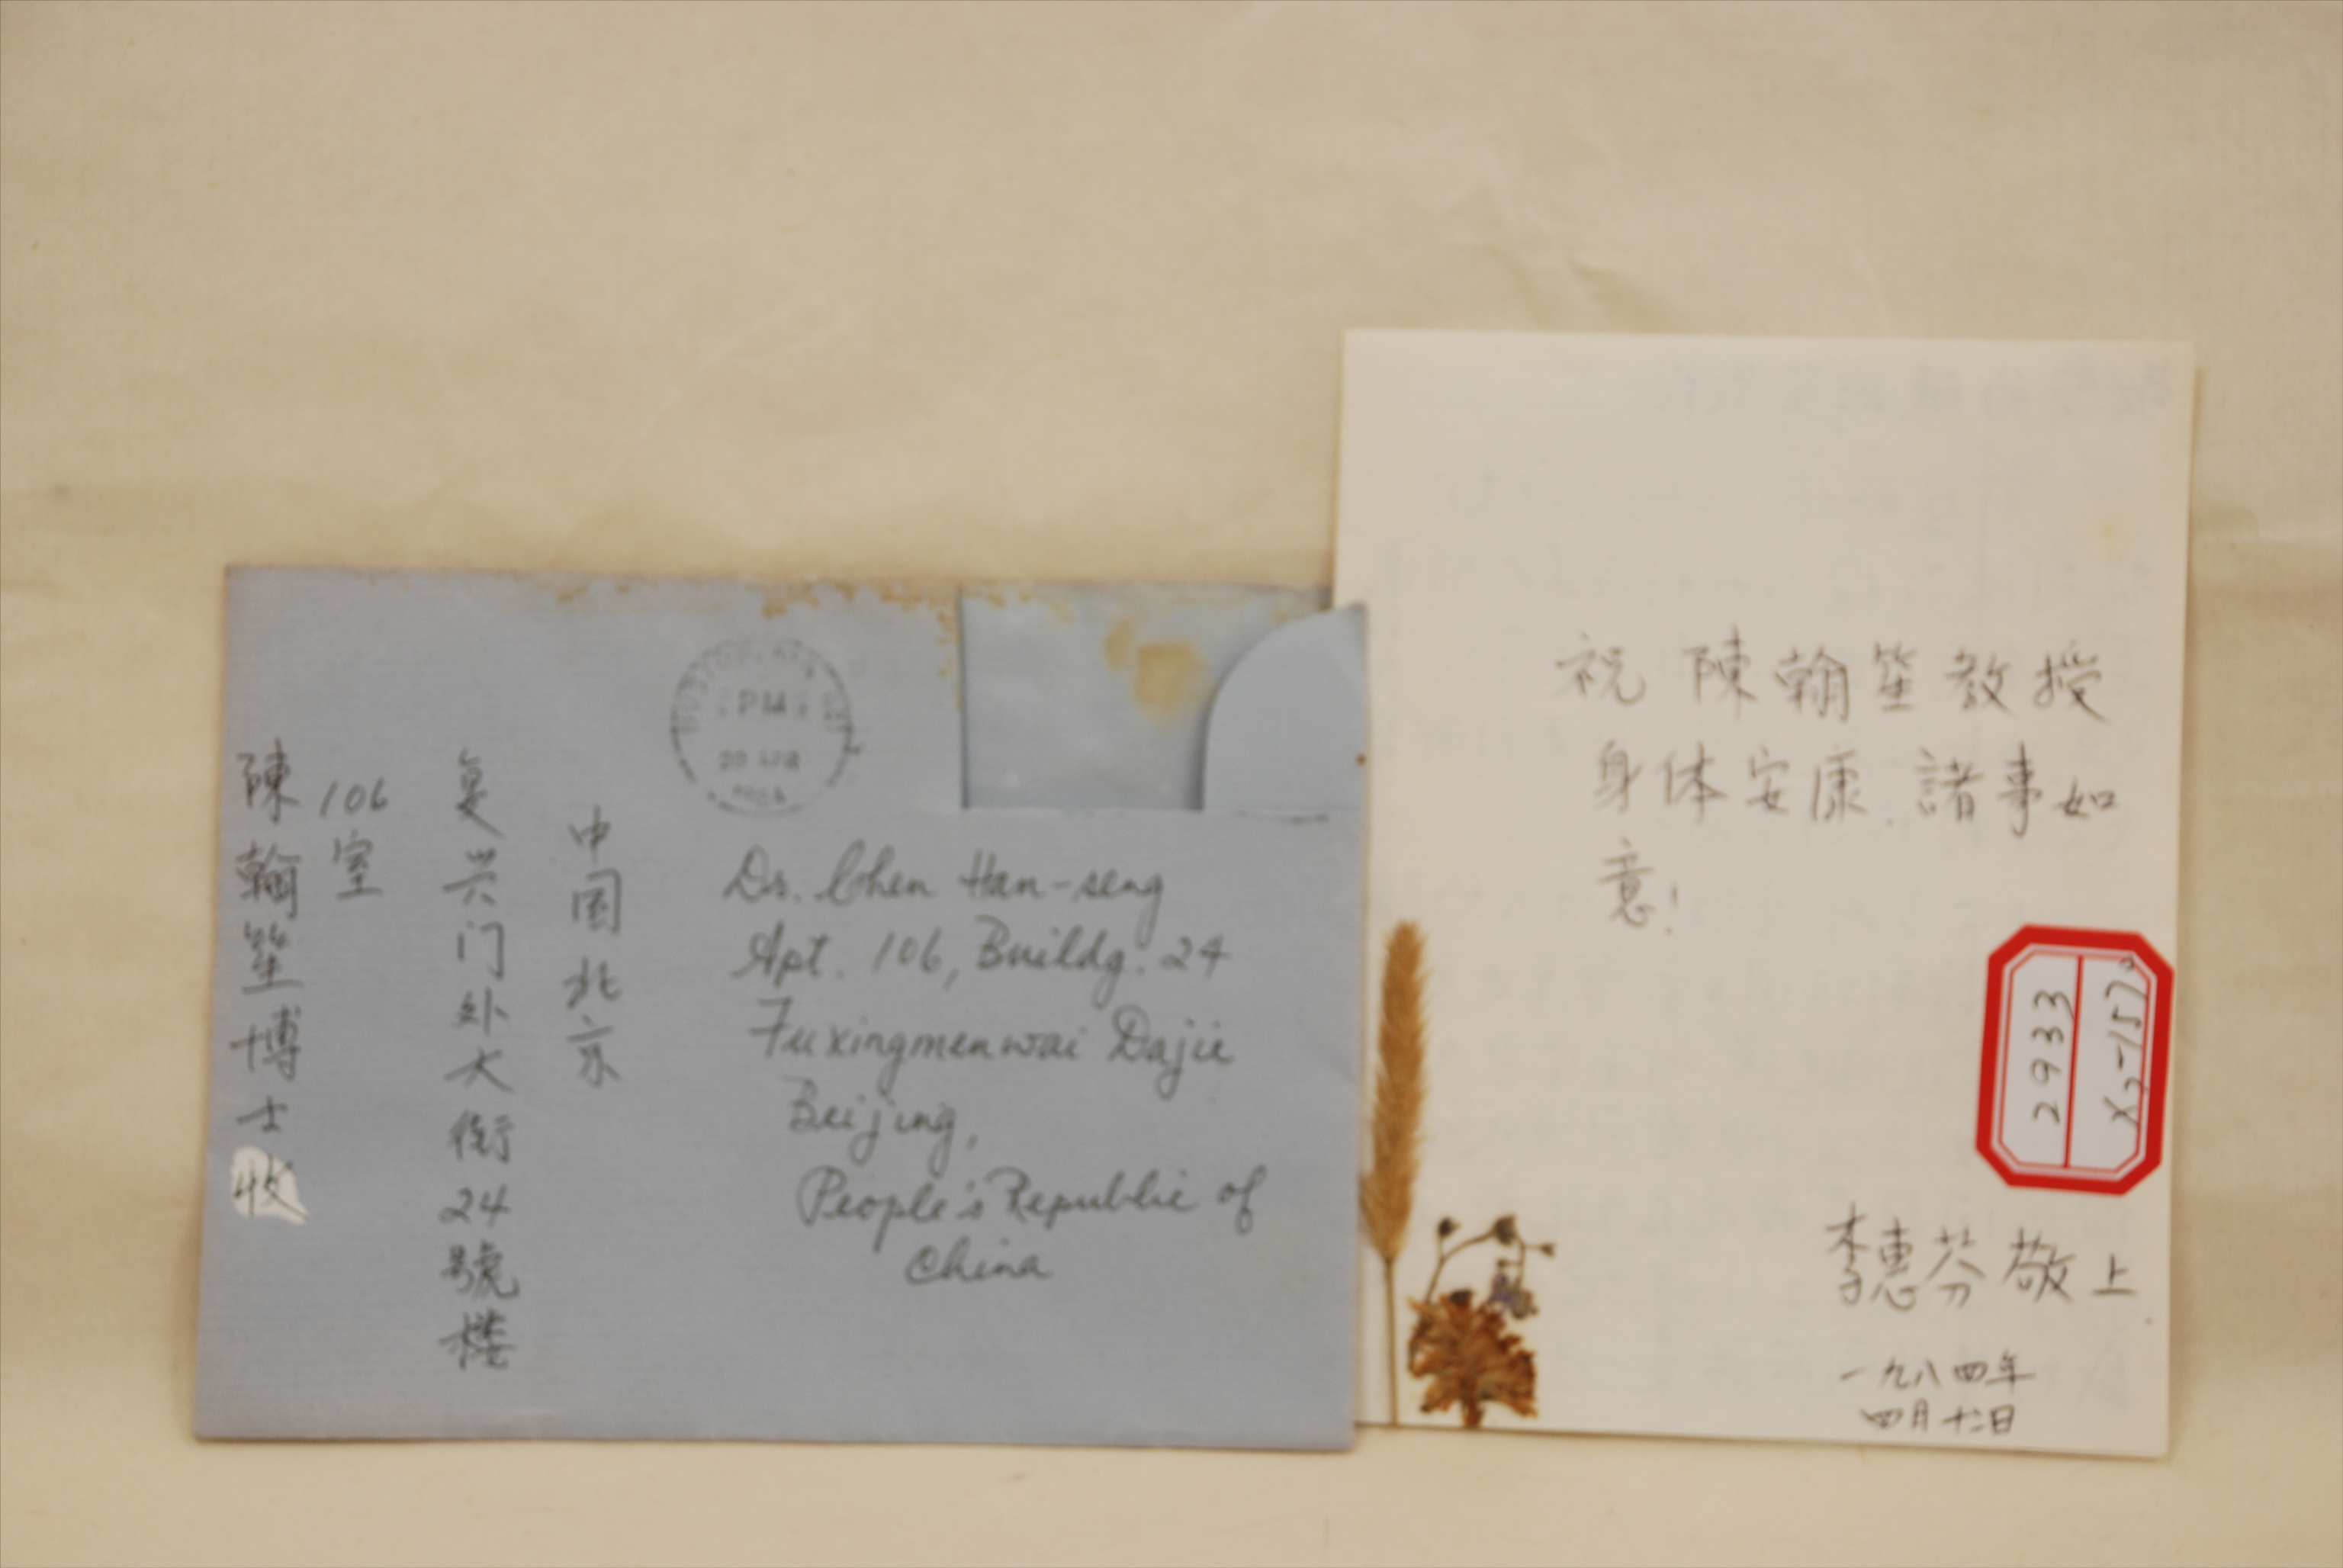 中国北京
复兴门外大街24號楼
106室
陳翰笙博士收
PM
Dr. Chen Han-seng
Apt. 106, Buildg. 24
Fuxingmenwai Dajie
Beijing,
People's Republic of
China
祝 陳翰笙教授
身体安康、諸事如
意!
2933
李惠芬敬上
一九八四年
四月十二日